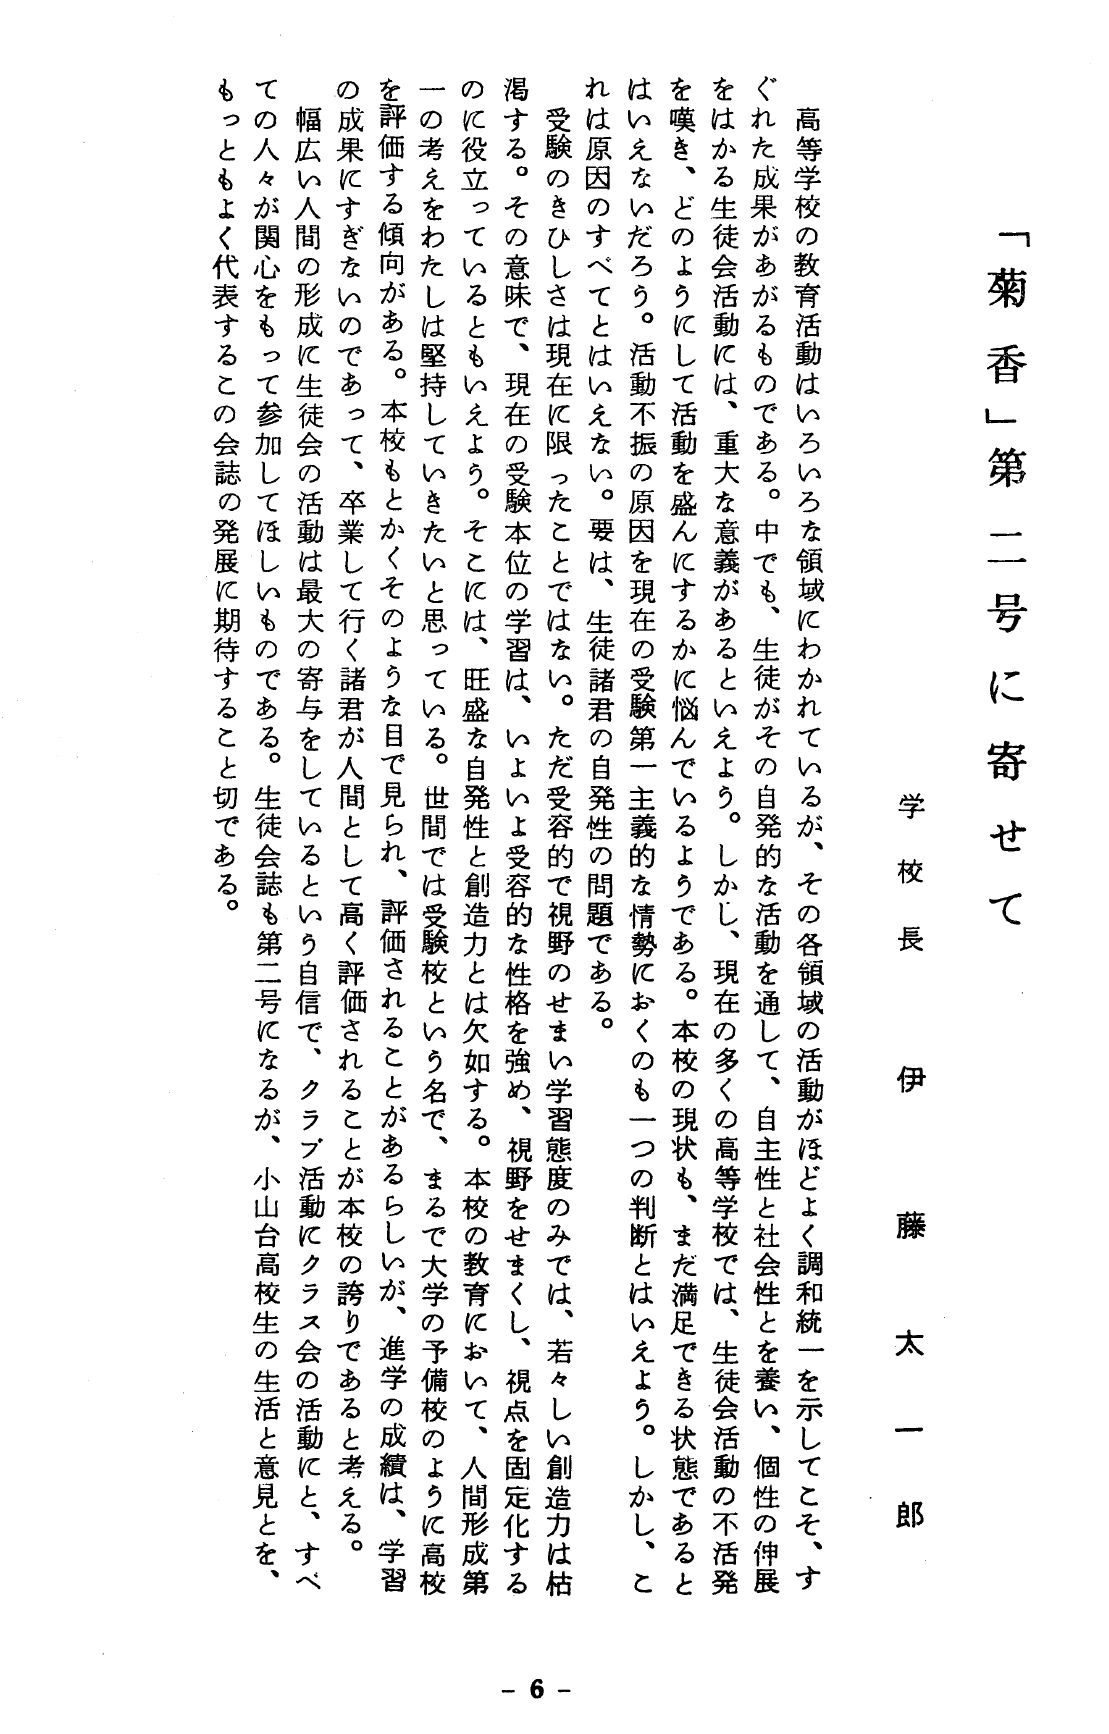 「菊香」第二号に寄せて
学校長 伊藤太一郎
高等学校の教育活動はいろいろな領域にわかれているが、その各領域の活動がほどよく調和統一を示してこそ、す
ぐれた成果があがるものである。中でも、生徒がその自発的な活動を通して、自主性と社会性とを養い、個性の伸展
をはかる生徒会活動には、重大な意義があるといえよう。しかし、現在の多くの高等学校では、生徒会活動の不活発
を嘆き、どのようにして活動を盛んにするかに悩んでいるようである。本校の現状も、まだ満足できる状態であると
はいえないだろう。活動不振の原因を現在の受験第一主義的な情勢におくのも一つの判断とはいえよう。しかし、こ
れは原因のすべてとはいえない。要は、生徒諸君の自発性の問題である。
受験のきひしさは現在に限ったことではない。ただ受容的で視野のせまい学習態度のみでは、若々しい創造力は枯
渇する。その意味で、現在の受験本位の学習は、いよいよ受容的な性格を強め、視野をせまくし、視点を固定化する
のに役立っているともいえよう。そこには、旺盛な自発性と創造力とは欠如する。本校の教育において、人間形成第
一の考えをわたしは堅持していきたいと思っている。世間では受験校という名で、まるで大学の予備校のように高校
を評価する傾向がある。本校もとかくそのような目で見られ、評価されることがあるらしいが、進学の成績は、学習
の成果にすぎないのであって、卒業して行く諸君が人間として高く評価されることが本校の誇りであると考える。
幅広い人間の形成に生徒会の活動は最大の寄与をしているという自信で、クラブ活動にクラス会の活動にと、すべ
ての人々が関心をもって参加してほしいものである。生徒会誌も第二号になるが、小山台高校生の生活と意見とを、
もっともよく代表するこの会誌の発展に期待すること切である。
- 6 -